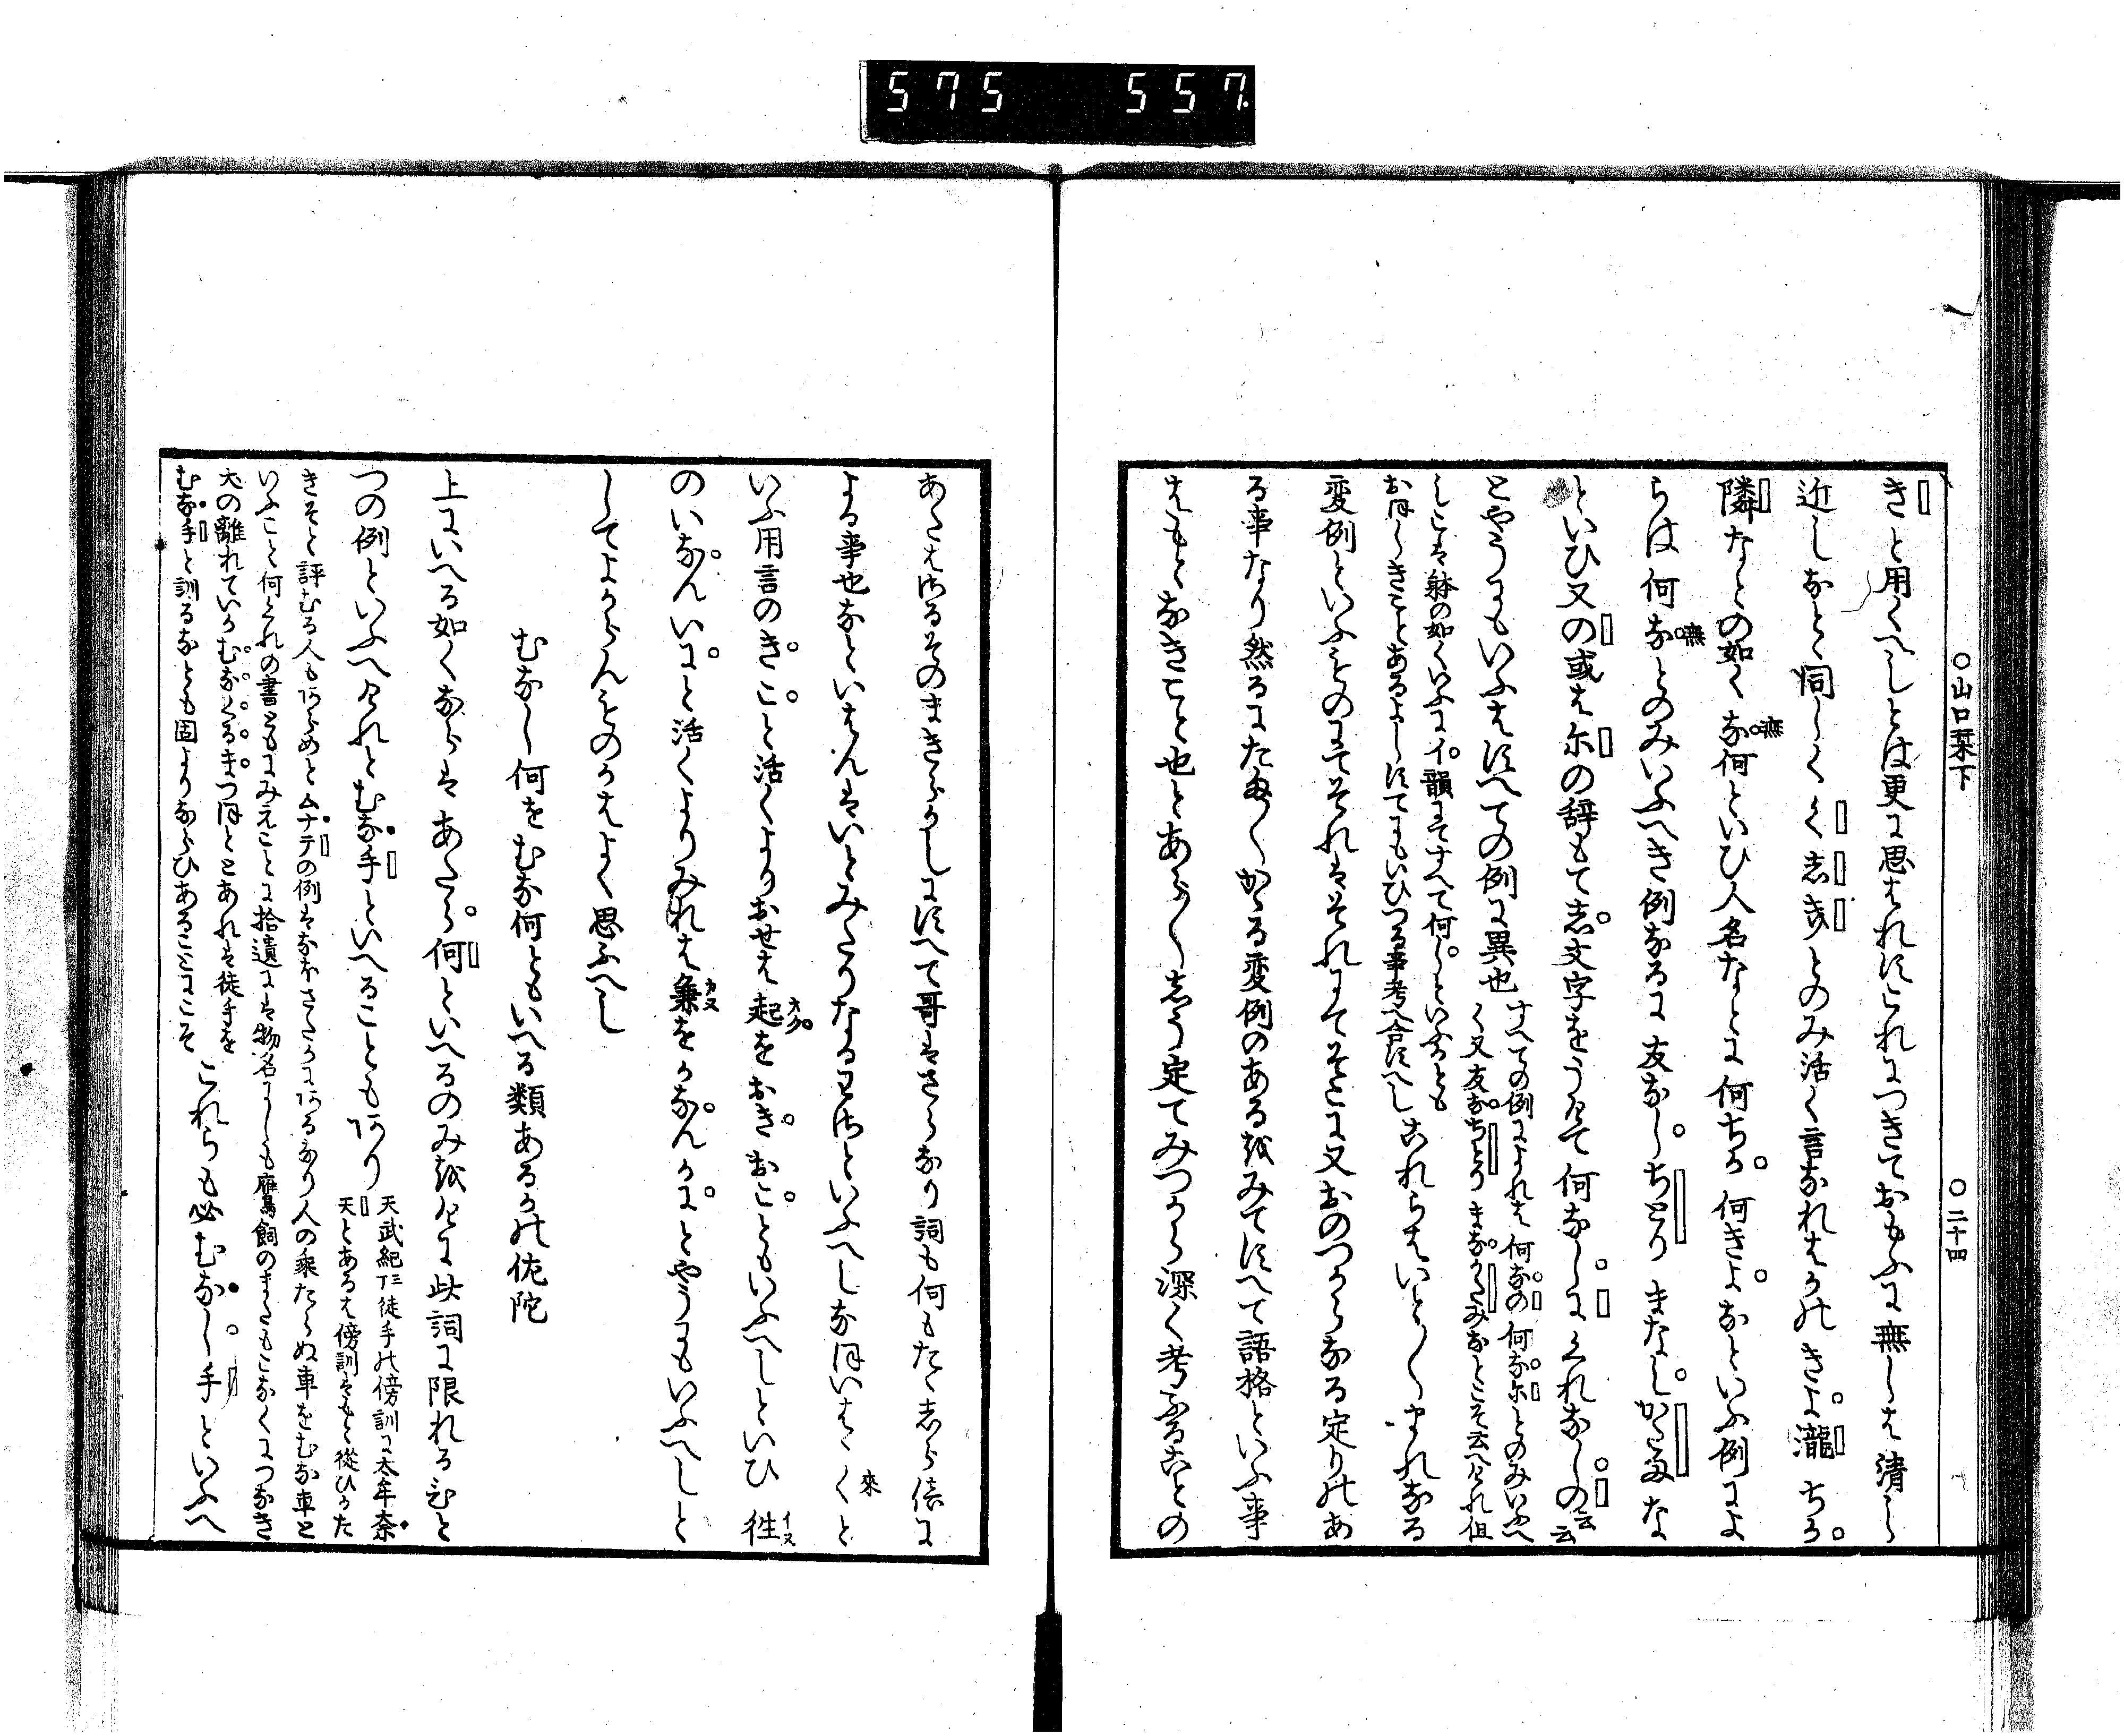 575 557.
○山口栞下 ○二十四
きと用くへしとは更に思はれすこれにつきておもふに無しは清し
近しなとゝ同しくくしきとのみ活く言なれはかのきよ瀧ちか
隣なとの如くな無何といひ人名なとに何ちか何きよなといふ例によ
らは何な無とのみいふへき例なるに友なしちとりまなしかたまな
といひ又の或は尓の辞もて志文字をうけて何なしにくれなしの云云
とやうにもいふはすへての例に異也
すへての例によれは何なの何な尓とのみいふへ
く又友なちとりまなかたみなとこそ云へけれ但
しこは躰の如くいふにイ韻にてすへて何しといふなとも
おほしきことあるよしにてもいひつる事考へ合すへし
これらはいと〱まれなる
変例といふものにてそれはそれにてそこに又おのつからなる定りのあ
る事なり然るにたま〱かゝる変例のあるをみてすへて語格といふ事
はもとなきこと也とあら〱しう定てみつから深く考ふることの
あたはさるそのまきらかしにすへて哥はさらなり詞も何もたゝしら倍に
よる事也なといはんはいとみたりなるわさといふへしなほいはゝく來と
いふ用言のきこと活くよりおせは起オクをおきおこともいふへしといひ往イヌ
のいなんいにと活くよりみれは兼カヌをかなんかにとやうにもいふへしと
してよからんものかはよく思ふへし
むなし何をむな何ともいへる類あるかの佗陀
上にいへる如くならはあたら何といへるのみをけに此詞に限れるひと
つの例といふへけれとむな手といへることもあり
天武紀下三徒手の傍訓に太牟奈
天とあるは傍訓はもと從ひかた
きそと評むる人もあらめとムナテの例はなほさたかにあるなり人の乘たらぬ車をむな車と
いふこと何くれの書ともにみえことに拾遺には物名にしも鷹飼のまたもこなくにつなき
犬の離れていかむなくるまつほととあれは徒手を
むな手と訓るなとも固よりならひあることにこそ
これらも必むなし手といふへ